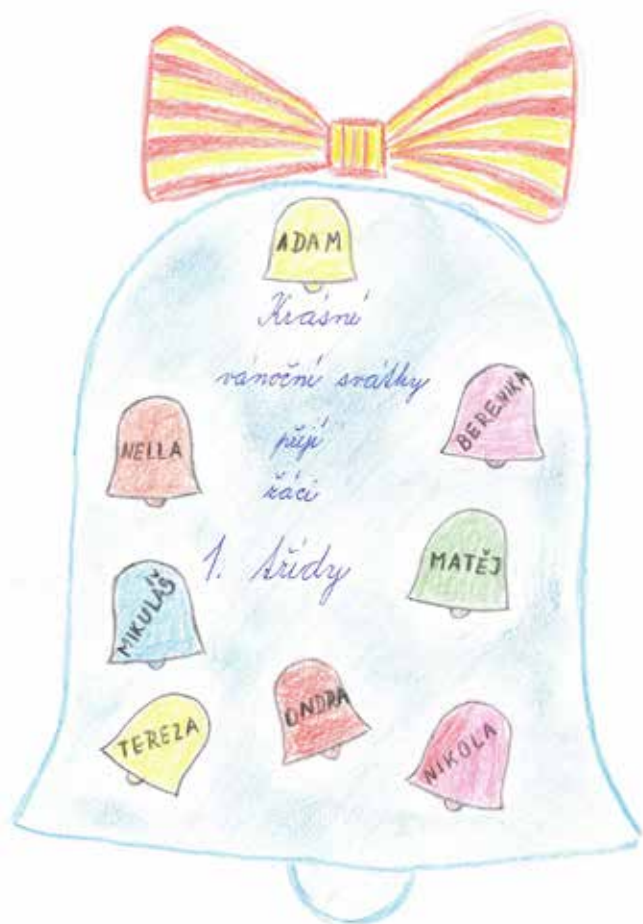 ADAM
Krásné
vánoční svátky
přejí
žáci
1. třídy
NELLA
BERENIKA
MIKULÁŠ
MATĚJ
TEREZA
ONDRA
NIKOLA